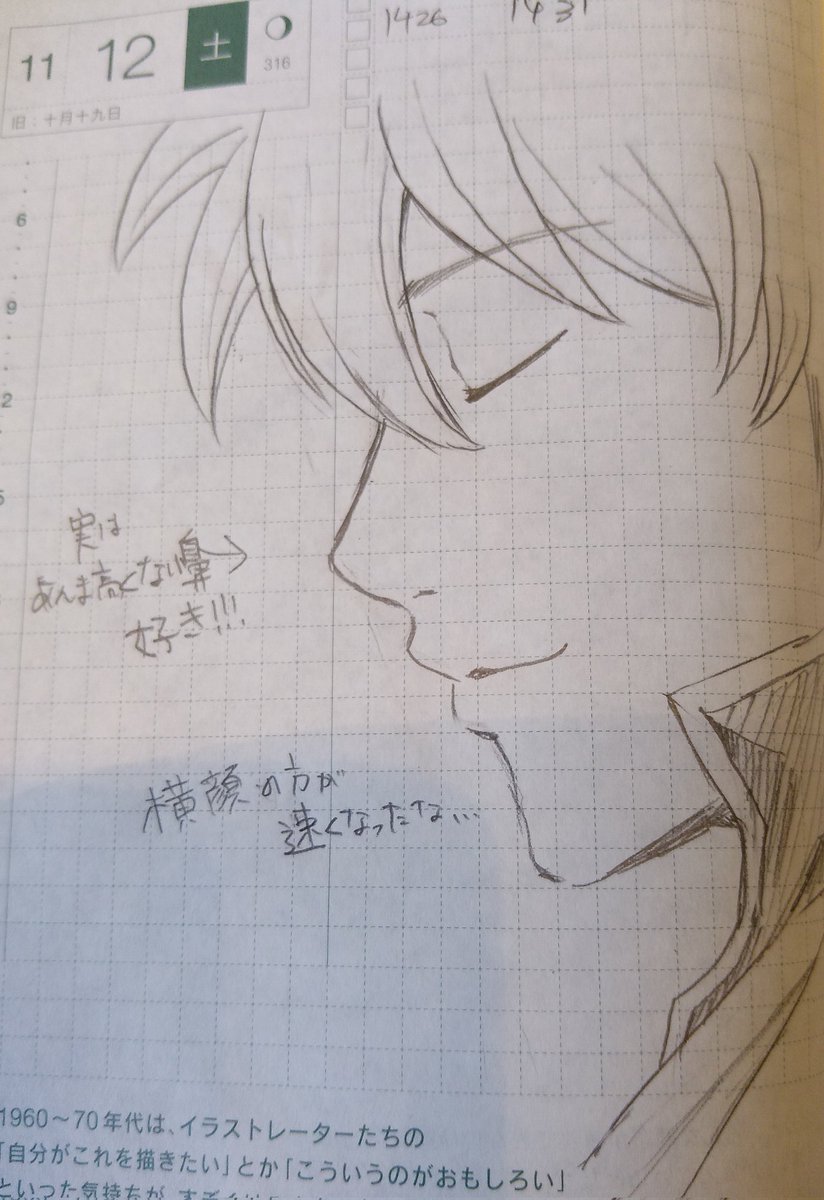 11 12 土
316
旧：十月十九日
1426 1431
6
9
実は
あんま高くない鼻→
好き!!!
横顔の方が
速くなったな…
1960～70年代は、イラストレーターたちの
「自分がこれを描きたい」とか「こういうのがおもしろい」
といった気持ちが、